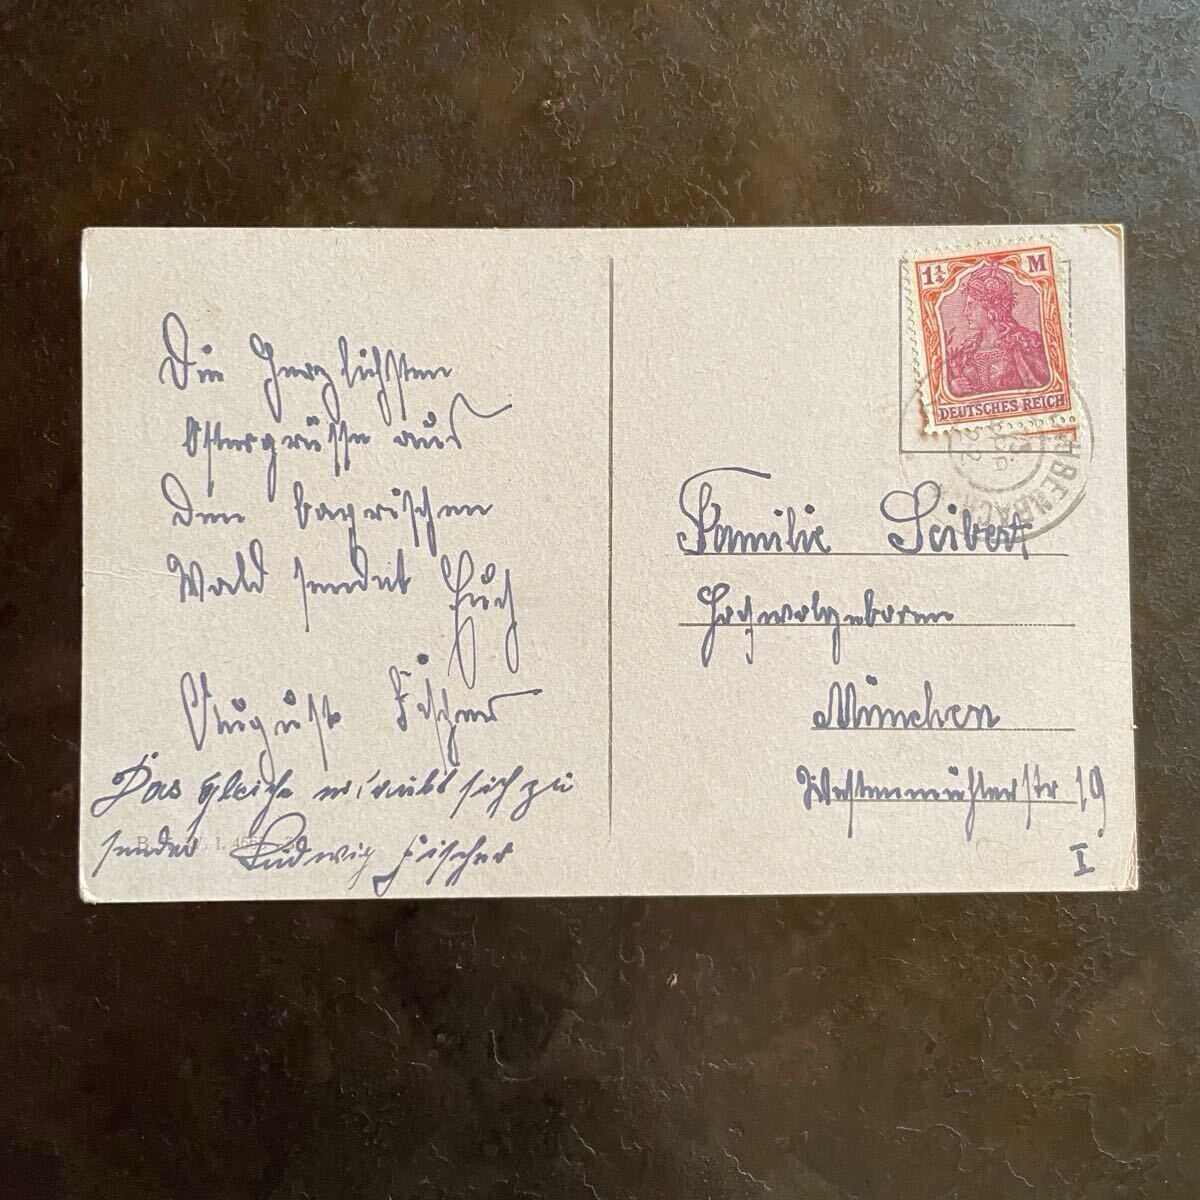 Die herzlichsten
Ostergrüsse aus
dem bayrischen
Wald sendet Euch
August Fischer
Das gleiche erlaubt sich zu
senden Ludwig Fischer
1¼ M
DEUTSCHES REICH
Familie Seibert
Hochwolgeboren
München
Westermühlerstr 19
I